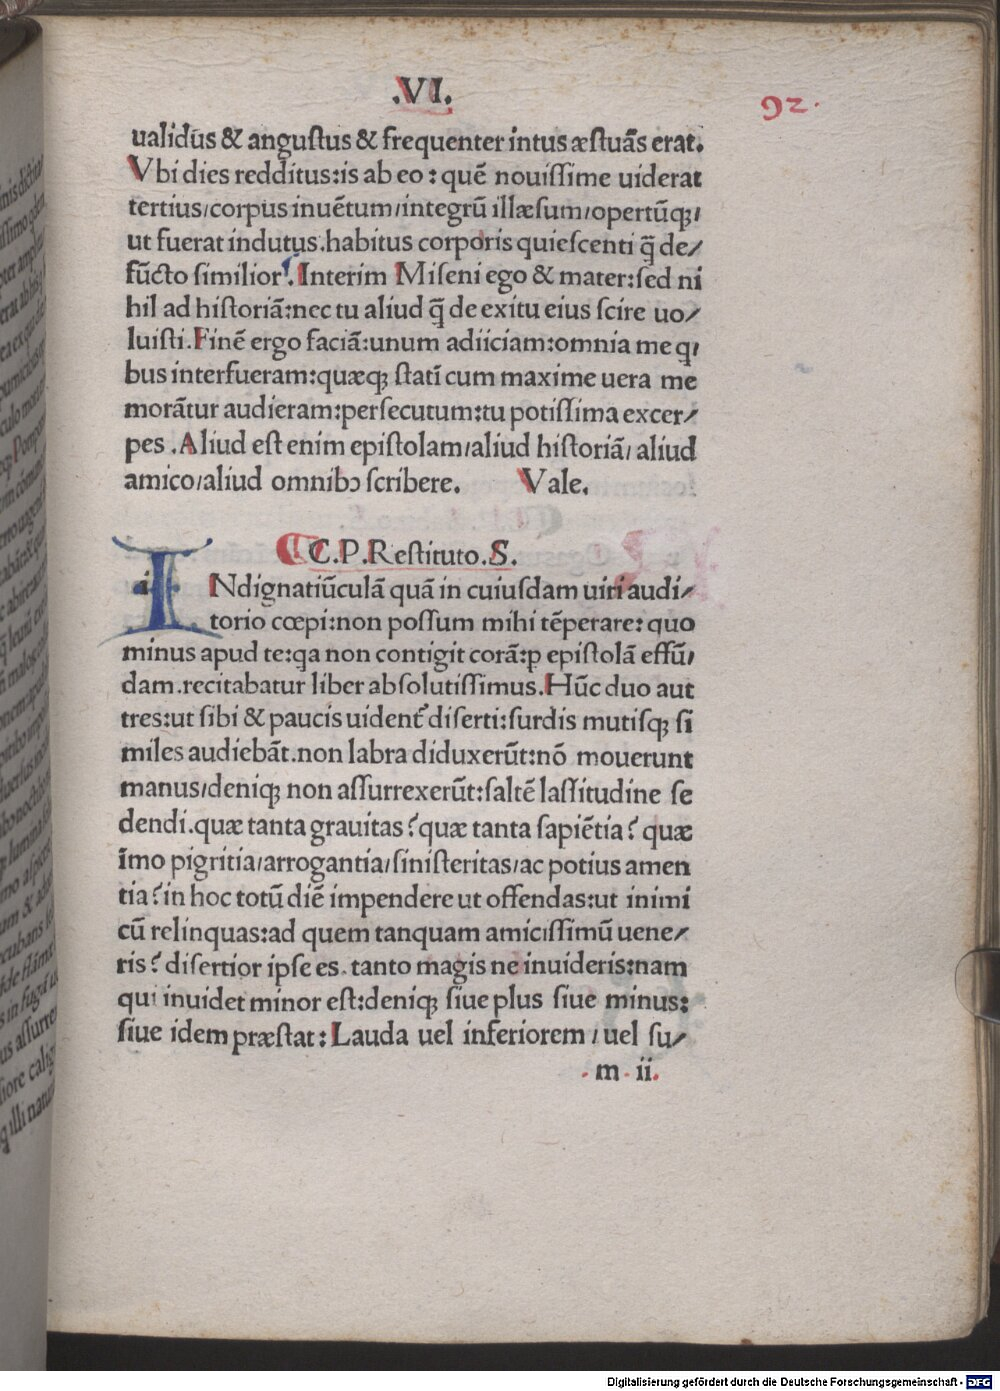 .VI.
92.
ualidus & angustus & frequenter intus æstuãs erat.
Vbi dies redditus:is ab eo: quẽ nouissime uiderat
tertius/corpus inuẽtum/integrũ illæsum/opertũqꝫ/
ut fuerat indutus.habitus corporis quiescenti q̃ de/
fũcto similior. Interim Miseni ego & mater:sed ni
hil ad historiã:nec tu aliud q̃ de exitu eius scire uo/
luisti.Finẽ ergo faciã:unum adiiciam:omnia me q/
bus interfueram:quæqꝫ statĩ cum maxime uera me
morãtur audieram:persecutum:tu potissima excer/
pes .Aliud est enim epistolam/aliud historiã/ aliud
amico/aliud omnibꝰ scribere. Vale.
C.P.Restituto.S.
i INdignatiũculã quã in cuiusdam uiri audi/
torio cœpi:non possum mihi tẽperare: quo
minus apud te:qa non contigit corã:ꝑ epistolã effũ/
dam.recitabatur liber absolutissimus.Hũc duo aut
tres:ut sibi & paucis uident̃ diserti:surdis mutisqꝫ si
miles audiebãt.non labra diduxerũt:nõ mouerunt
manus/deniqꝫ non assurrexerũt:saltẽ lassitudine se
dendi.quæ tanta grauitas? quæ tanta sapiẽtia? quæ
ĩmo pigritia/arrogantia/sinisteritas/ac potius amen
tia? in hoc totũ diẽ impendere ut offendas:ut inimi
cũ relinquas:ad quem tanquam amicissimũ uene/
ris? disertior ipse es. tanto magis ne inuideris:nam
qui inuidet minor est:deniqꝫ siue plus siue minus:
siue idem præstat: Lauda uel inferiorem / uel su/
. m . ii.
Digitalisierung gefördert durch die Deutsche Forschungsgemeinschaft - DFG